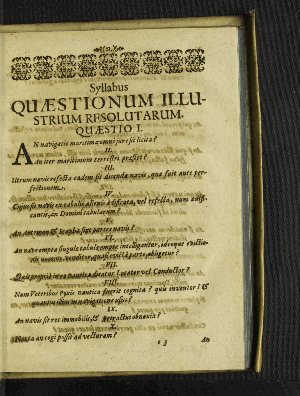 Syllabus
QUÆSTIONUM ILLU-
STRIUM RESOLUTARUM.
QUÆSTIO I.
AN navigatio maritima omni jure sit licita?
II.
An iter maritimum terrestri præstet?
III.
Utrum navis refecta eadem sit dicenda navis, quæ fuit ante per-
fectionem.
IV.
Cujus sit navis ex tabulis alienis ædificata, vel refecta, num ædifi-
cantis, an Domini tabularum?
V.
An Armamenta & scapha sint partes navis?
VI.
An navi empta singulæ tabulæ emptæ intelligantur, ideoque evictio-
nis nomine venditor, quasi evicta parte, obligetur?
VII.
Quis proprie in re nautica dicatur Locator vel Conductor?
VIII.
Num Veteribus Pyxis nautica fuerit cognita? quis inventor? &
quantus illius in navigatione usus?
IX.
An navis sit res immobilis, & retractui obnoxia?
X.
Nauta an cogi possit ad vecturam?
3
An